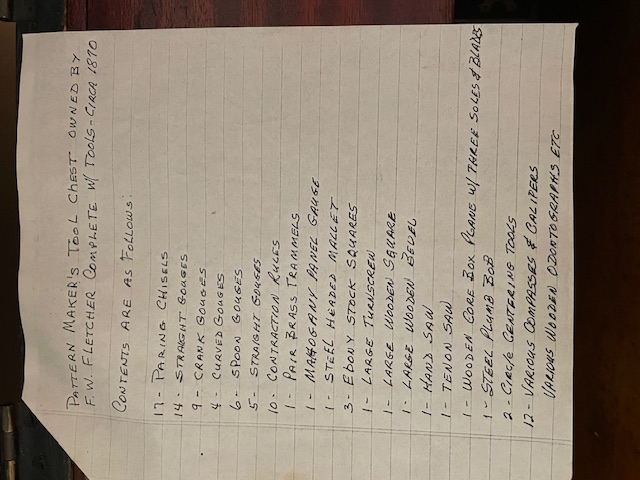 PATTERN MAKER'S TOOL CHEST OWNED BY
F.W. FLETCHER COMPLETE W/ TOOLS - CIRCA 1890
CONTENTS ARE AS FOLLOWS:
17 - PARING CHISELS
14 - STRAIGHT GOUGES
9 - CRANK GOUGES
4 - CURVED GOUGES
6 - SPOON GOUGES
5 - STRAIGHT GOUGES
10 - CONTRACTION RULES
1 - PAIR BRASS TRAMMELS
1 - MAHOGANY PANEL GAUGE
1 - STEEL HEADED MALLET
3 - EBONY STOCK SQUARES
1 - LARGE TURNSCREW
1 - LARGE WOODEN SQUARE
1 - LARGE WOODEN BEVEL
1 - HAND SAW
1 - TENON SAW
1 - WOODEN CORE BOX PLANE W/ THREE SOLES & BLADES
1 - STEEL PLUMB BOB
2 - CIRCLE CENTERING TOOLS
12 - VARIOUS COMPASSES & CALIPERS
VARIOUS WOODEN ODONTOGRAPHS ETC